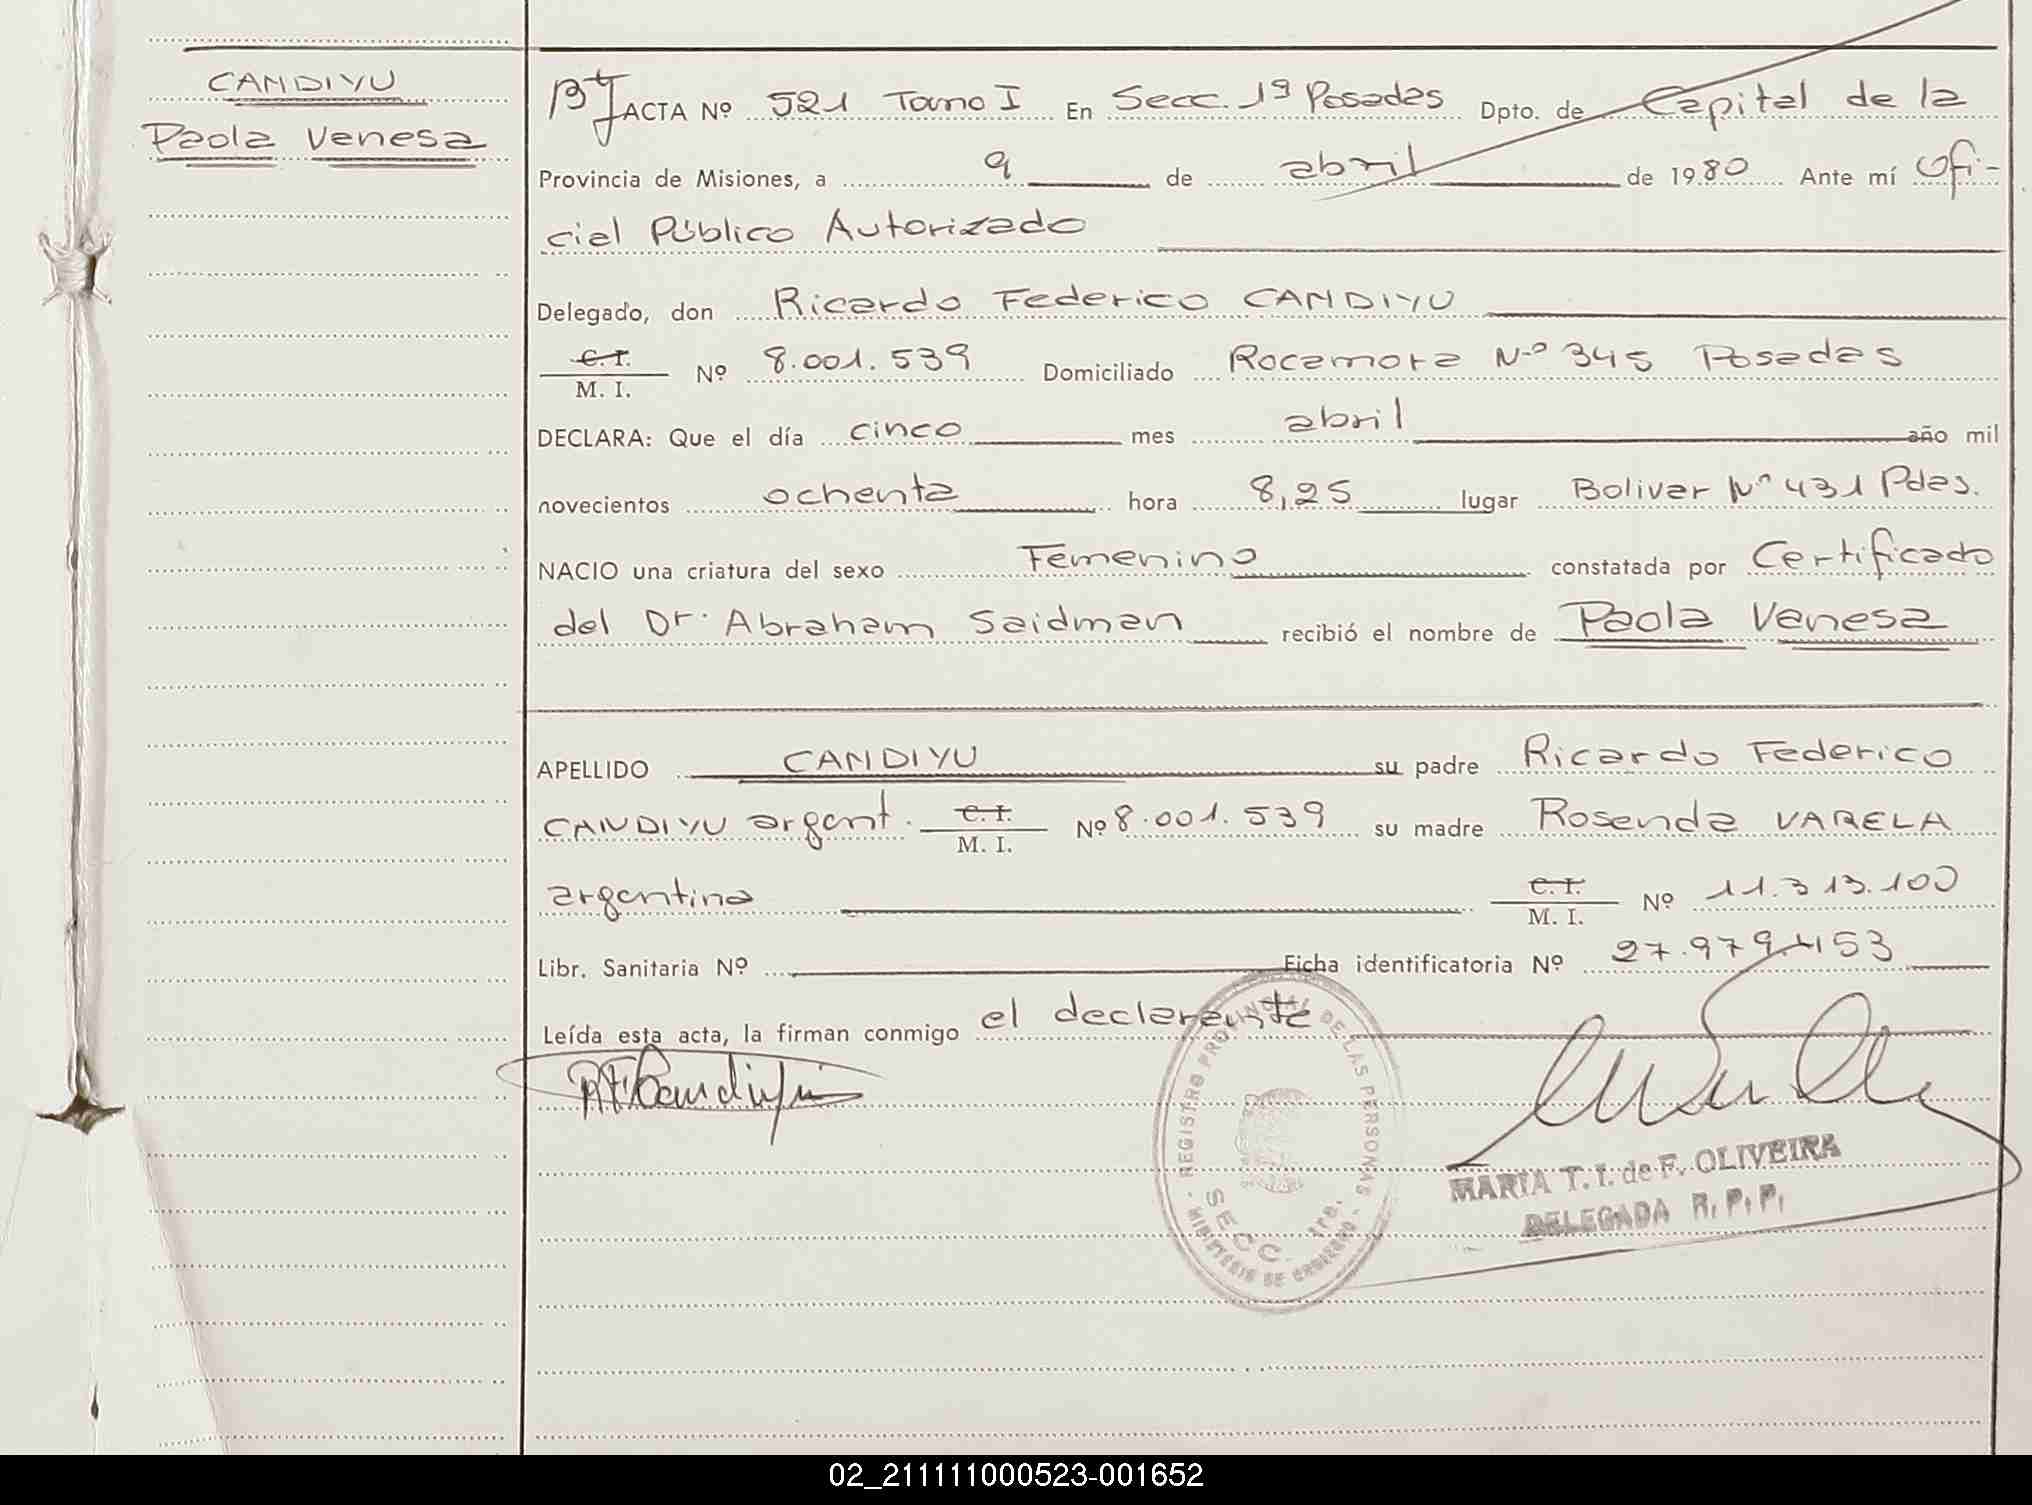 CANDIYU
Paola Vanesa
ACTA Nº 521 Tomo I En Secc. 1ª Posadas Dpto. de Capital de la
Provincia de Misiones, a 9 de abril de 1980 Ante mí Ofi-
cial Público Autorizado
Delegado, don Ricardo Federico CANDIYU
C. I.
M. I. Nº 8.001.539 Domiciliado Rocamora Nº 345 Posadas
DECLARA: Que el día cinco mes abril año mil
novecientos ochenta hora 8,25 lugar Bolivar Nº 431 Pdas.
NACIO una criatura del sexo Femenino constatada por Certificado
del Dr. Abraham Saidman recibió el nombre de Paola Vanesa
APELLIDO CANDIYU su padre Ricardo Federico
CANDIYU argent. C. I. Nº 8.001.539 su madre Rosenda VARELA
M. I.
argentina C. I. Nº 11.313.100
M. I.
Libr. Sanitaria Nº Ficha identificatoria Nº 27.979.453
Leída esta acta, la firman conmigo el declarante
R F Candiyu
REGISTRO PROVINCIAL DE LAS PERSONAS
SECC. 1ra.
MINISTERIO DE GOBIERNO
MARIA T. I. de F. OLIVEIRA
DELEGADA R. P. P.
02_211111000523-001652